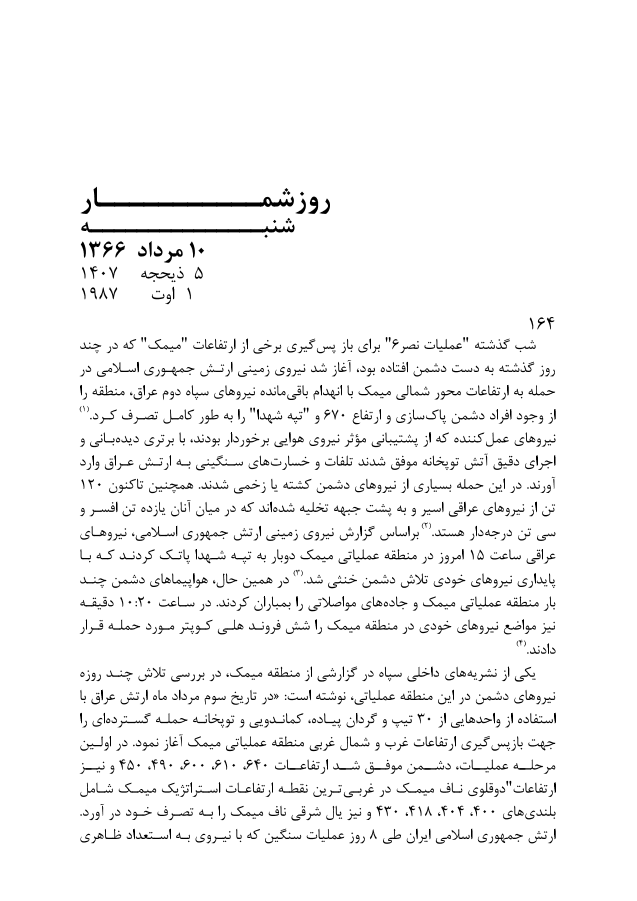 روزشمار
شنبه
۱۰ مرداد ۱۳۶۶
۵ ذیحجه ۱۴۰۷
۱ اوت ۱۹۸۷
۱۶۴
شب گذشته "عملیات نصر۶" برای باز پس‌گیری برخی از ارتفاعات "میمک" که در چند
روز گذشته به دست دشمن افتاده بود، آغاز شد نیروی زمینی ارتش جمهوری اسلامی در
حمله به ارتفاعات محور شمالی میمک با انهدام باقی‌مانده نیروهای سپاه دوم عراق، منطقه را
از وجود افراد دشمن پاک‌سازی و ارتفاع ۶۷۰ و "تپه شهدا" را به طور کامل تصرف کرد.(۱)
نیروهای عمل‌کننده که از پشتیبانی مؤثر نیروی هوایی برخوردار بودند، با برتری دیده‌بانی و
اجرای دقیق آتش توپخانه موفق شدند تلفات و خسارت‌های سنگینی به ارتش عراق وارد
آورند. در این حمله بسیاری از نیروهای دشمن کشته یا زخمی شدند. همچنین تاکنون ۱۲۰
تن از نیروهای عراقی اسیر و به پشت جبهه تخلیه شده‌اند که در میان آنان یازده تن افسر و
سی تن درجه‌دار هستد.(۲) براساس گزارش نیروی زمینی ارتش جمهوری اسلامی، نیروهای
عراقی ساعت ۱۵ امروز در منطقه عملیاتی میمک دوبار به تپه شهدا پاتک کردند که با
پایداری نیروهای خودی تلاش دشمن خنثی شد.(۳) در همین حال، هواپیماهای دشمن چند
بار منطقه عملیاتی میمک و جاده‌های مواصلاتی را بمباران کردند. در ساعت ۱۰:۲۰ دقیقه
نیز مواضع نیروهای خودی در منطقه میمک را شش فروند هلی کوپتر مورد حمله قرار
دادند.(۴)
یکی از نشریه‌های داخلی سپاه در گزارشی از منطقه میمک، در بررسی تلاش چند روزه
نیروهای دشمن در این منطقه عملیاتی، نوشته است: «در تاریخ سوم مرداد ماه ارتش عراق با
استفاده از واحدهایی از ۳۰ تیپ و گردان پیاده، کماندویی و توپخانه حمله گسترده‌ای را
جهت بازپس‌گیری ارتفاعات غرب و شمال غربی منطقه عملیاتی میمک آغاز نمود. در اولین
مرحله عملیات، دشمن موفق شد ارتفاعات ۶۴۰، ۶۱۰، ۶۰۰، ۴۹۰، ۴۵۰ و نیز
ارتفاعات"دوقلوی ناف میمک در غربی‌ترین نقطه ارتفاعات استراتژیک میمک شامل
بلندی‌های ۴۰۰، ۴۰۴، ۴۱۸، ۴۳۰ و نیز یال شرقی ناف میمک را به تصرف خود در آورد.
ارتش جمهوری اسلامی ایران طی ۸ روز عملیات سنگین که با نیروی به استعداد ظاهری